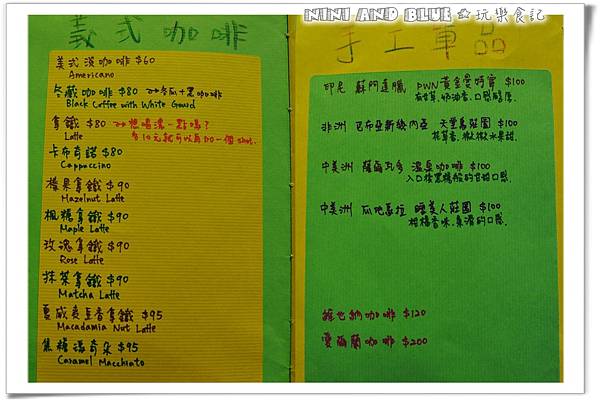 NINI AND BLUE☆玩樂食記
義式咖啡
美式淡咖啡 $60
Americano
冬藏咖啡 $80 →冬瓜+黑咖啡
Black Coffee with White Gourd
拿鐵 $80 →想喝濃一點嗎?
Latte 多10元就可以再加一個shot.
卡布奇諾 $80
Cappuccino
榛果拿鐵 $90
Hazelnut Latte
楓糖拿鐵 $90
Maple Latte
玫瑰拿鐵 $90
Rose Latte
抹茶拿鐵 $90
Matcha Latte
夏威夷豆香拿鐵 $95
Macadamia Nut Latte
焦糖瑪奇朵 $95
Caramel Macchiato
手工單品
印尼 蘇門達臘 PWN黃金曼特寧 $100
奶油香.口感醇厚.
非洲 巴布亞新幾內亞 天堂鳥莊園 $100
花草香.微微水果甜.
中美洲 薩爾瓦多 溫泉咖啡 $100
入口後黑糖般的甘甜口感.
中美洲 瓜地馬拉 睡美人莊園 $100
柑橘香味.柔滑的口感.
維也納咖啡 $120
愛爾蘭咖啡 $200